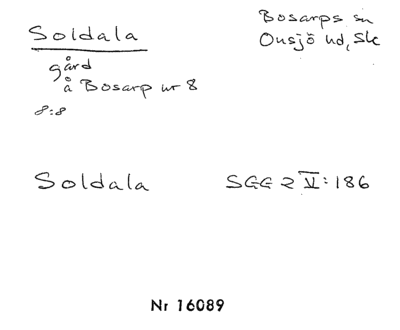 Soldala
Bosarps sn
Onsjö hd, Sk
gård
å Bosarp nr 8
8:8
Soldala
SGG 2 V:186
Nr 16089